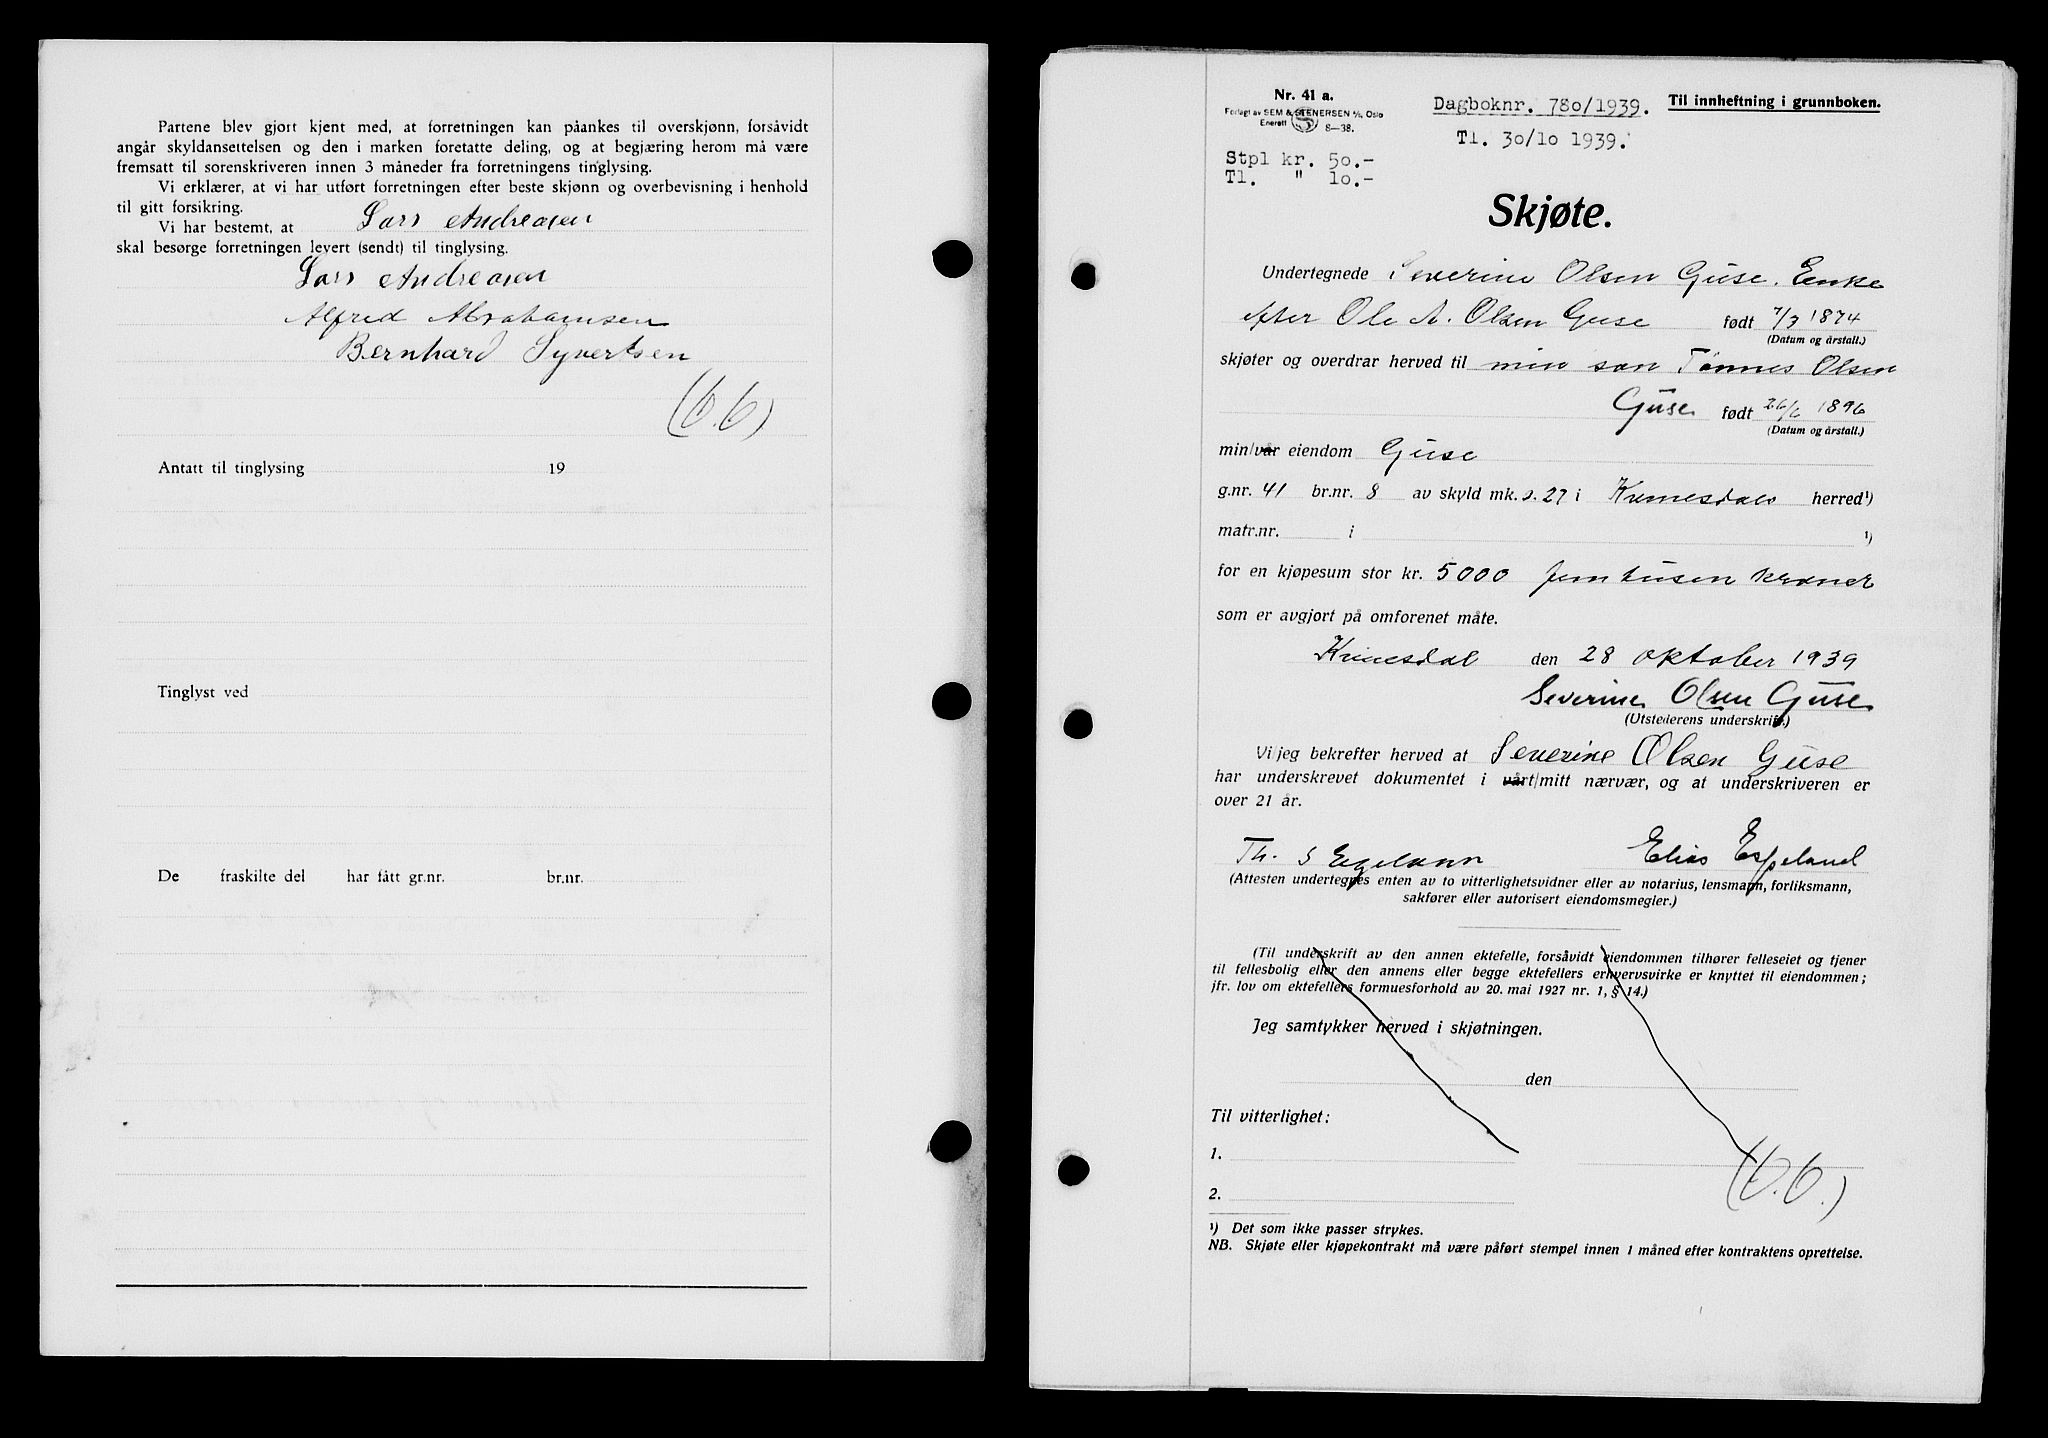 Partene blev gjort kjent med, at forretningen kan påankes til overskjønn, forsåvidt
angår skyldansettelsen og den i marken foretatte deling, og at begjæring herom må være
fremsatt til sorenskriveren innen 3 måneder fra forretningens tinglysing.
Vi erklærer, at vi har utført forretningen efter beste skjønn og overbevisning i henhold
til gitt forsikring.
Vi har bestemt, at Lars Andreasen
skal besørge forretningen levert (sendt) til tinglysing.
Lars Andreasen
Alfred Abrahamsen
Bernhard Syvertsen
Antatt til tinglysing 19
Tinglyst ved
De fraskilte del har fått gr.nr. br.nr.
Nr. 41 a.
Forlagt av SEM & STENERSEN A/S, Oslo
Enerett S 8—38.
Dagboknr. 780/1939. Til innheftning i grunnboken.
Tl. 30/10 1939.
Stpl kr. 50.-
Tl. " 10.-
Skjøte.
Undertegnede Severine Olsen Guse. Enke
efter Ole A. Olsen Guse født 7/3 1874
(Datum og årstall.)
skjøter og overdrar herved til min søn Tønnes Olsen
Guse født 26/6 1896
(Datum og årstall.)
min/vår eiendom Guse
g.nr. 41 br.nr. 8 av skyld mk. 0.27 i Kvinesdal herred¹)
matr.nr. i ¹)
for en kjøpesum stor kr. 5000 fem tusen kroner
som er avgjort på omforenet måte.
Kvinesdal den 28 oktober 1939
Severine Olsen Guse
(Utstederens underskrift.)
Vi/jeg bekrefter herved at Severine Olsen Guse
har underskrevet dokumentet i vårt/mitt nærvær, og at underskriveren er
over 21 år.
Th. S Egeland Elias Espeland
(Attesten undertegnes enten av to vitterlighetsvidner eller av notarius, lensmann, forliksmann,
sakfører eller autorisert eiendomsmegler.)
(Til underskrift av den annen ektefelle, forsåvidt eiendommen tilhører felleseiet og tjener
til fellesbolig eller den annens eller begge ektefellers erhvervsvirke er knyttet til eiendommen;
jfr. lov om ektefellers formuesforhold av 20. mai 1927 nr. 1, § 14.)
Jeg samtykker herved i skjøtningen.
den
Til vitterlighet:
1.
2.
¹) Det som ikke passer strykes.
NB. Skjøte eller kjøpekontrakt må være påført stempel innen 1 måned efter kontraktens oprettelse.